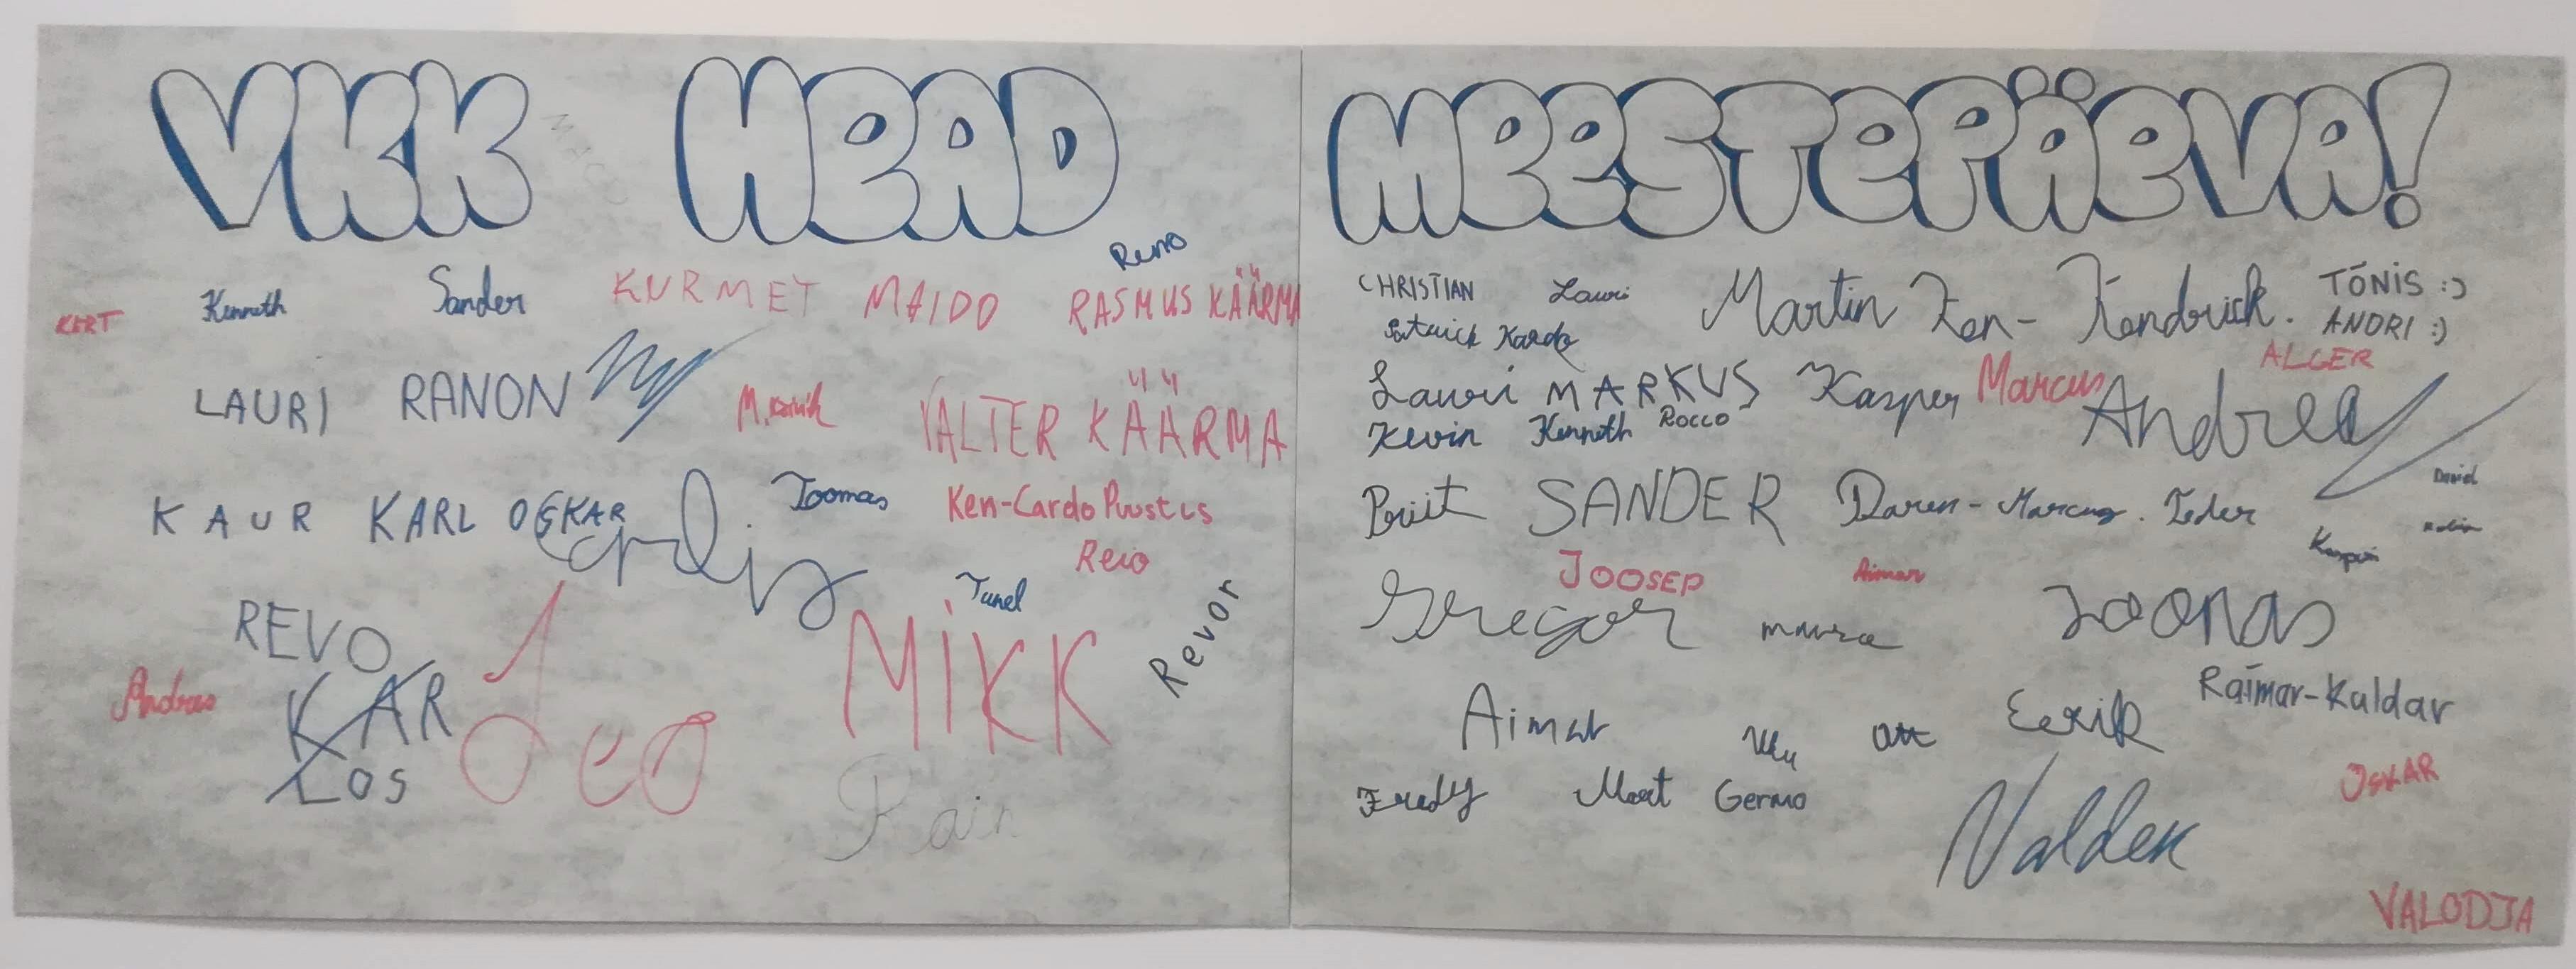 VKK HEAD MEESTEPÄEVA!
Reno
KERT Kenneth Sander KURMET MAIDO RASMUS KÄÄRMA
LAURI RANON VALTER KÄÄRMA
KAUR KARL OSKAR Toomas Ken-Cardo Puustus
Reio
Tanel
REVO MIKK Revor
Andreas KAR
LOS OLEO
Rain
CHRISTIAN Lauri Martin Ken-Kendrick. TÕNIS :)
Patrick Kardo ANDRI :)
ALGER
Lauri MARKUS Kasper Marcus Andrea
Kevin Kenneth Rocco
David
Priit SANDER Daren-Marcus. Teder
Robin
Kaspar
JOOSEP Aimar
Gregor Joonas
Raimar-Kuldar
Aimar Uku Ott Eerik
OSKAR
Fredy Mart Germo
Valdek
VALODJA